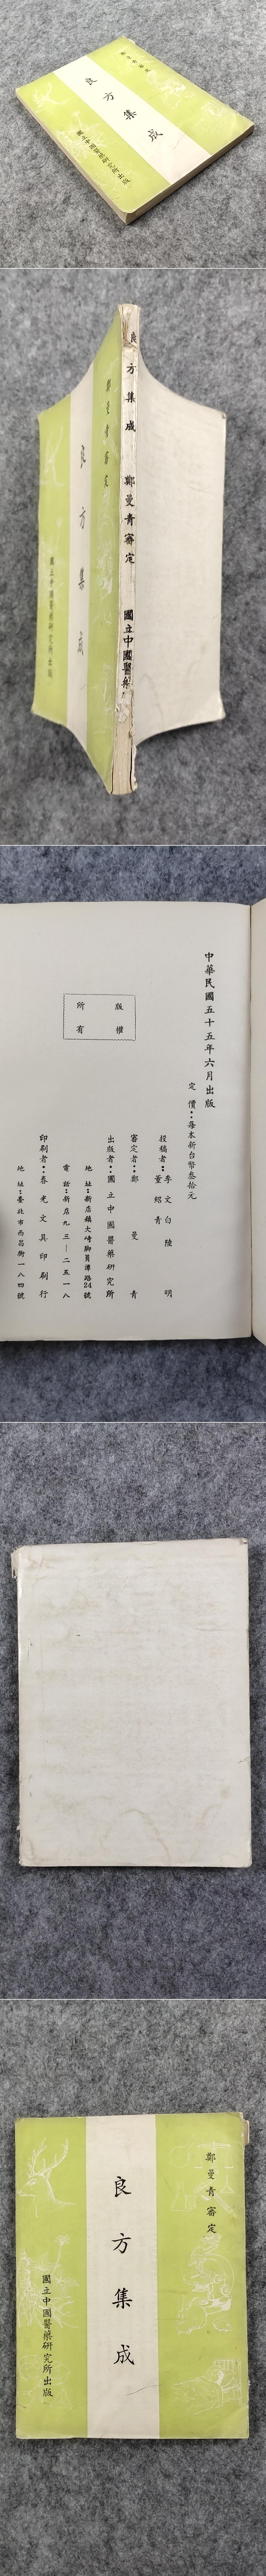 鄭曼青審定
良方集成
國立中國醫藥研究所出版
良方集成 鄭曼青審定 國立中國醫藥
鄭曼青審定
良方集成
國立中國醫藥研究所出版
中華民國五十五年六月出版
定 價：每本新台幣叁拾元
版權所有
投稿者：李文白 陸 明
董紹青
審定者：鄭 曼 青
出版者：國立中國醫藥研究所
地 址：新店鎮大崎腳員潭路24號
電 話：新店九三一二五一八
印刷者：春光文具印刷行
地 址：臺北市西昌街一八四號
鄭曼青審定
良方集成
國立中國醫藥研究所出版